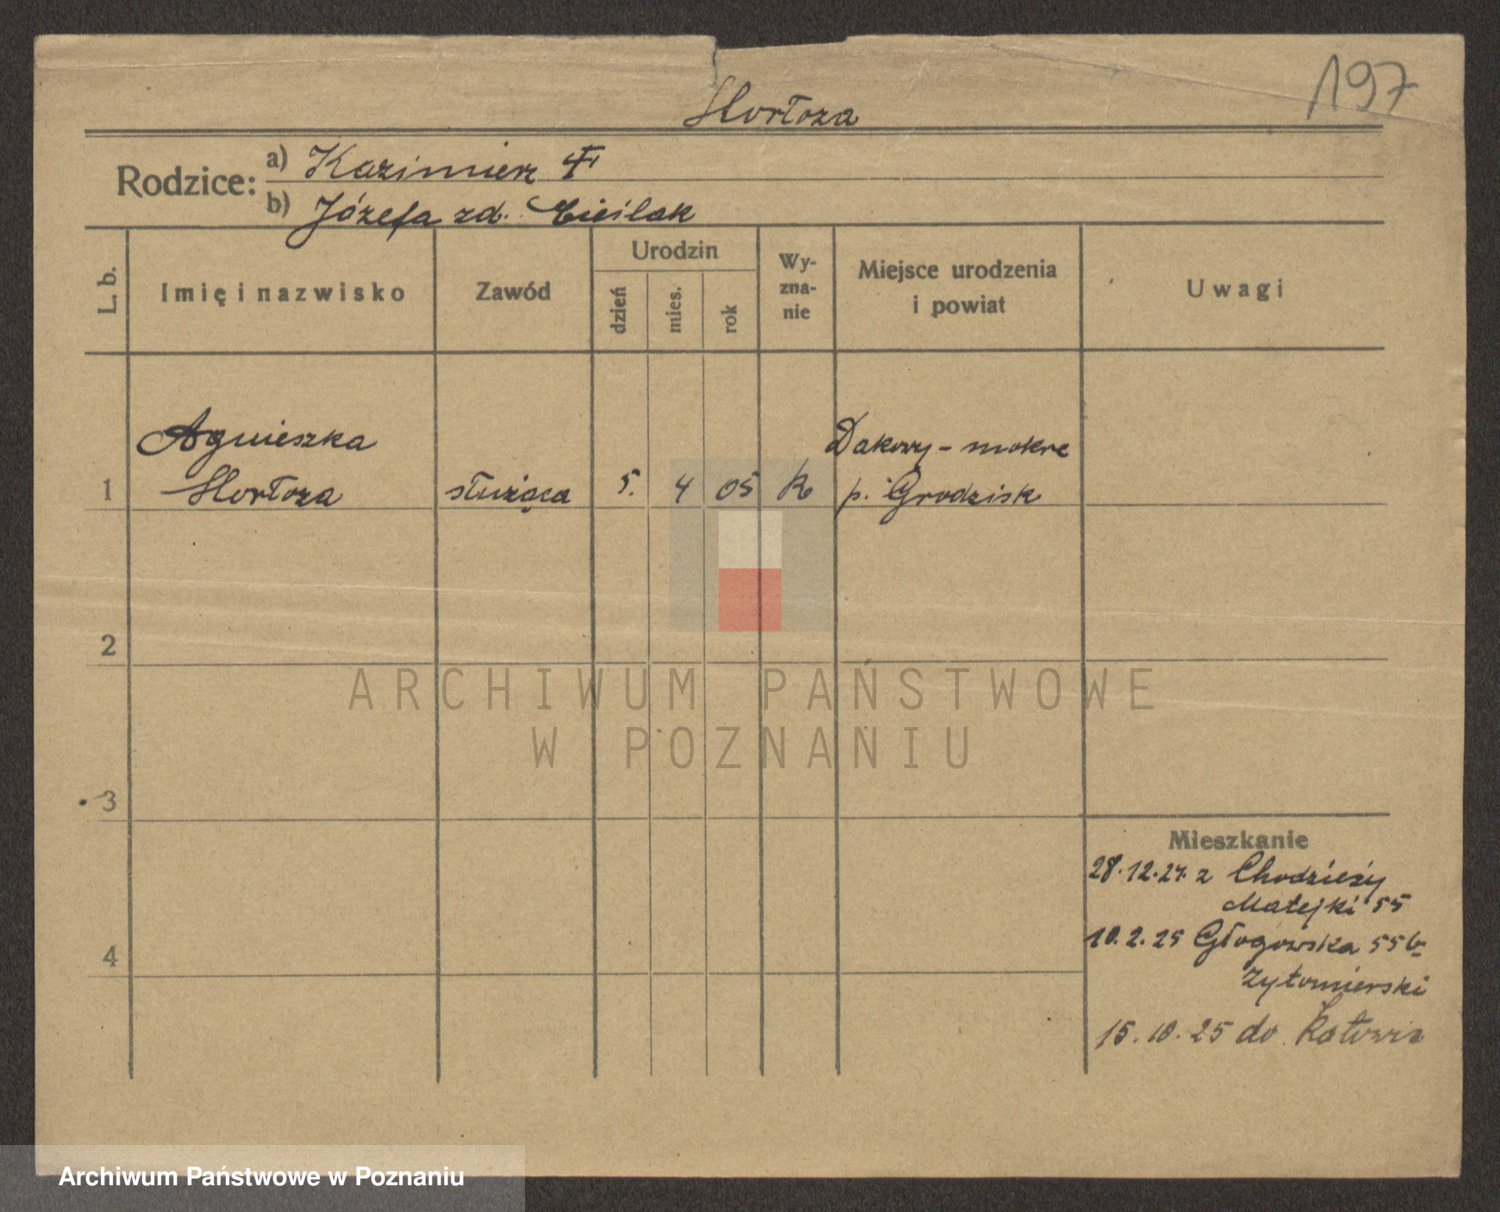 197
Hortoza
Rodzice:
a) Kazimierz
b) Józefa zd. Cieślak
L. b.
Imię i nazwisko
Zawód
Urodzin
dzień
mies.
rok
Wy-
zna-
nie
Miejsce urodzenia
i powiat
Uwagi
Agnieszka
Dakowy - mokre
1 Hortoza służąca 5. 4 05 K p. Grodzisk
2
3
4
Mieszkanie
28.12.24. z Chodzieży
Matejki 55
10.2.25 Głogowska 55b
Żytomierski
15.10.25 do Katowic
ARCHIWUM PAŃSTWOWE
W POZNANIU
Archiwum Państwowe w Poznaniu